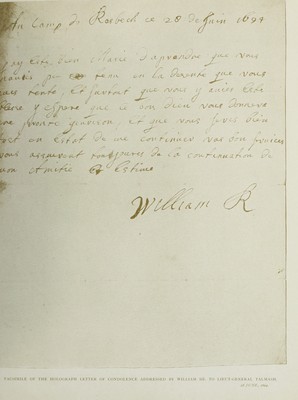 Au Camp de Rosbeck ce 28 de Juin 1694
este bien marie d'aprendre que vous
pu en la dessente que vous
tente, et surtout que vous y aviez esté
blessé j'espere que le bon dieu vous donnera
une pronte guerison, et que vous serez bien
tost en estat de me continuer vos bon services
vous assurant tousjours de la continuation de
mon Amitie et Estime
William R
FACSIMILE OF THE HOLOGRAPH LETTER OF CONDOLENCE ADDRESSED BY WILLIAM III. TO LIEUT.-GENERAL TALMASH.